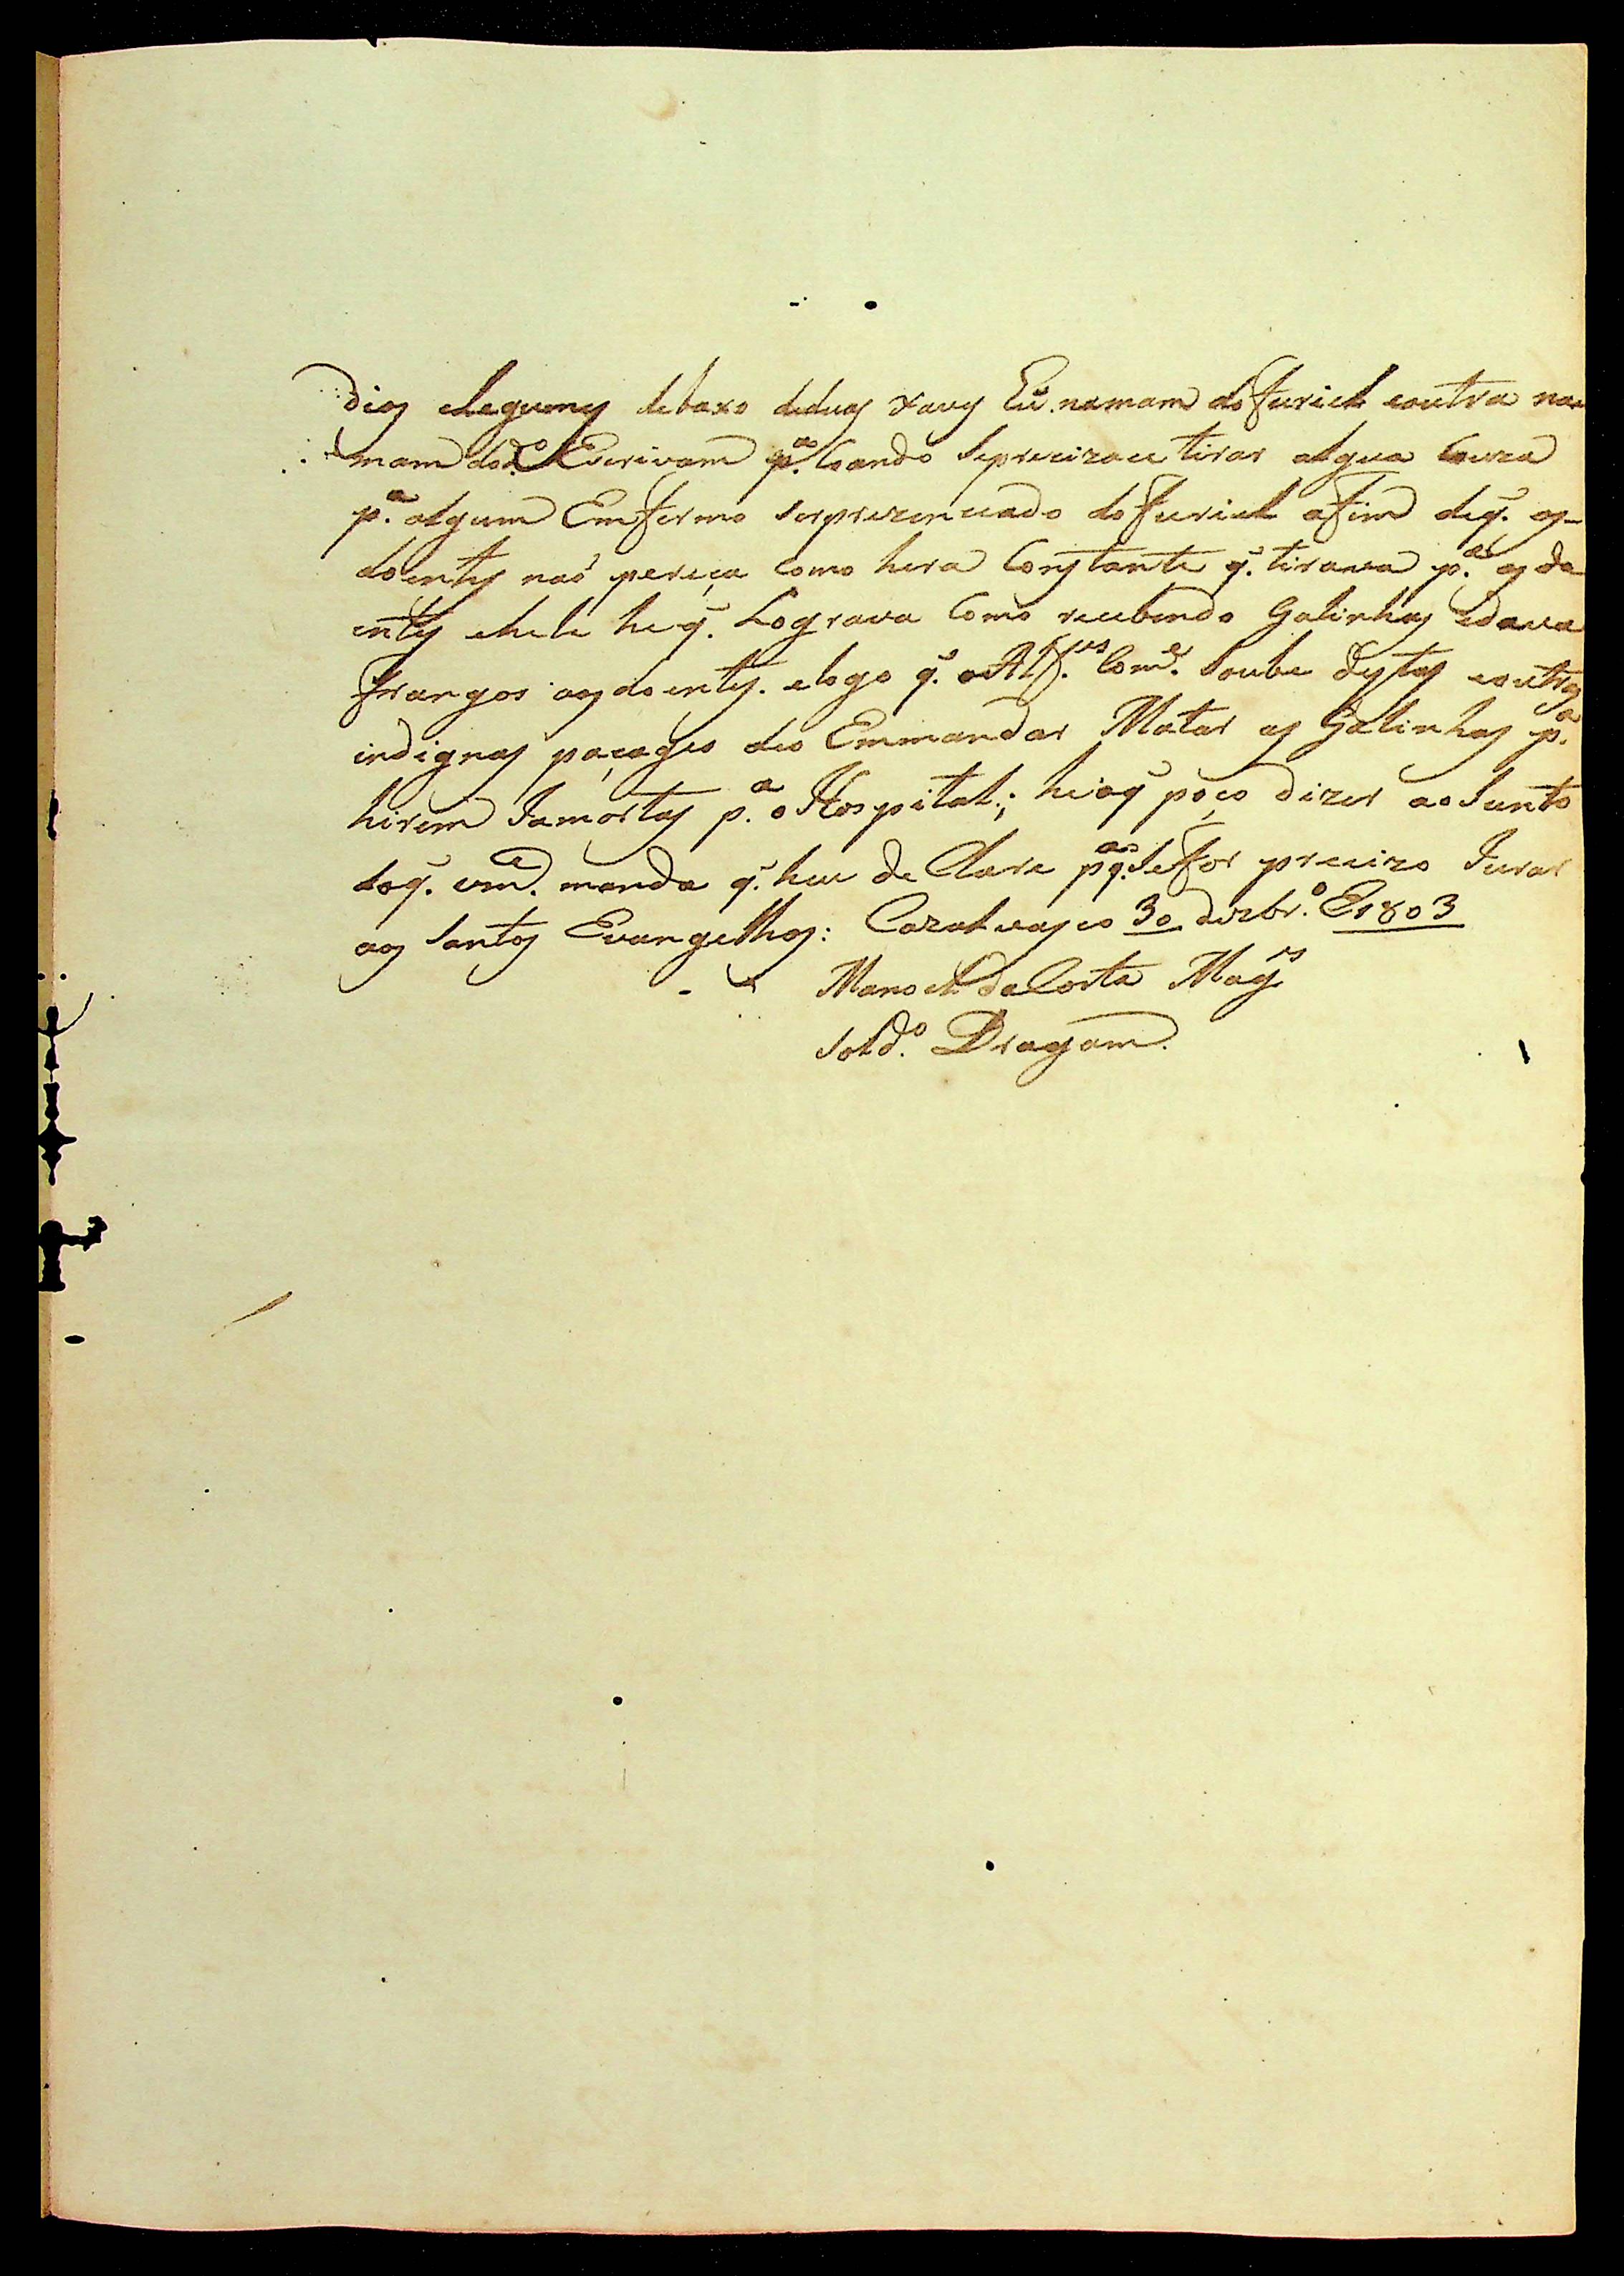 dios elegumes debaxo deduas xaves hũ namam do furiel eoutra na
mam do d.º Escrivam p.ª coando seprecizace tirar algua couza
p.ª algum Emfermo serprezenciado do furiel afim deq̃. os
doentes naõ pereça como hera Constante q̃. tirava p.ª os do
entes ehele heq̃. Lograva como recebendo Galinhas edava
frangos aos doentes. elogo q̃. o Alf.es Com.e soube destas eoutras
indignas paçages deo Emmandar Matar as Galinhas p.ª
hirem Jamortas p.ª o Hospital; heoq̃ poço dizer ao sunto
doq̃. vm.e manda q̃. heu de Clare p.ª q̃. sefor precizo Jurar
aos santos Evangelhos: Cazalvasco 30 dezbr.º E1803
Manoel da Costa Mag.es
sold.º Dragam.